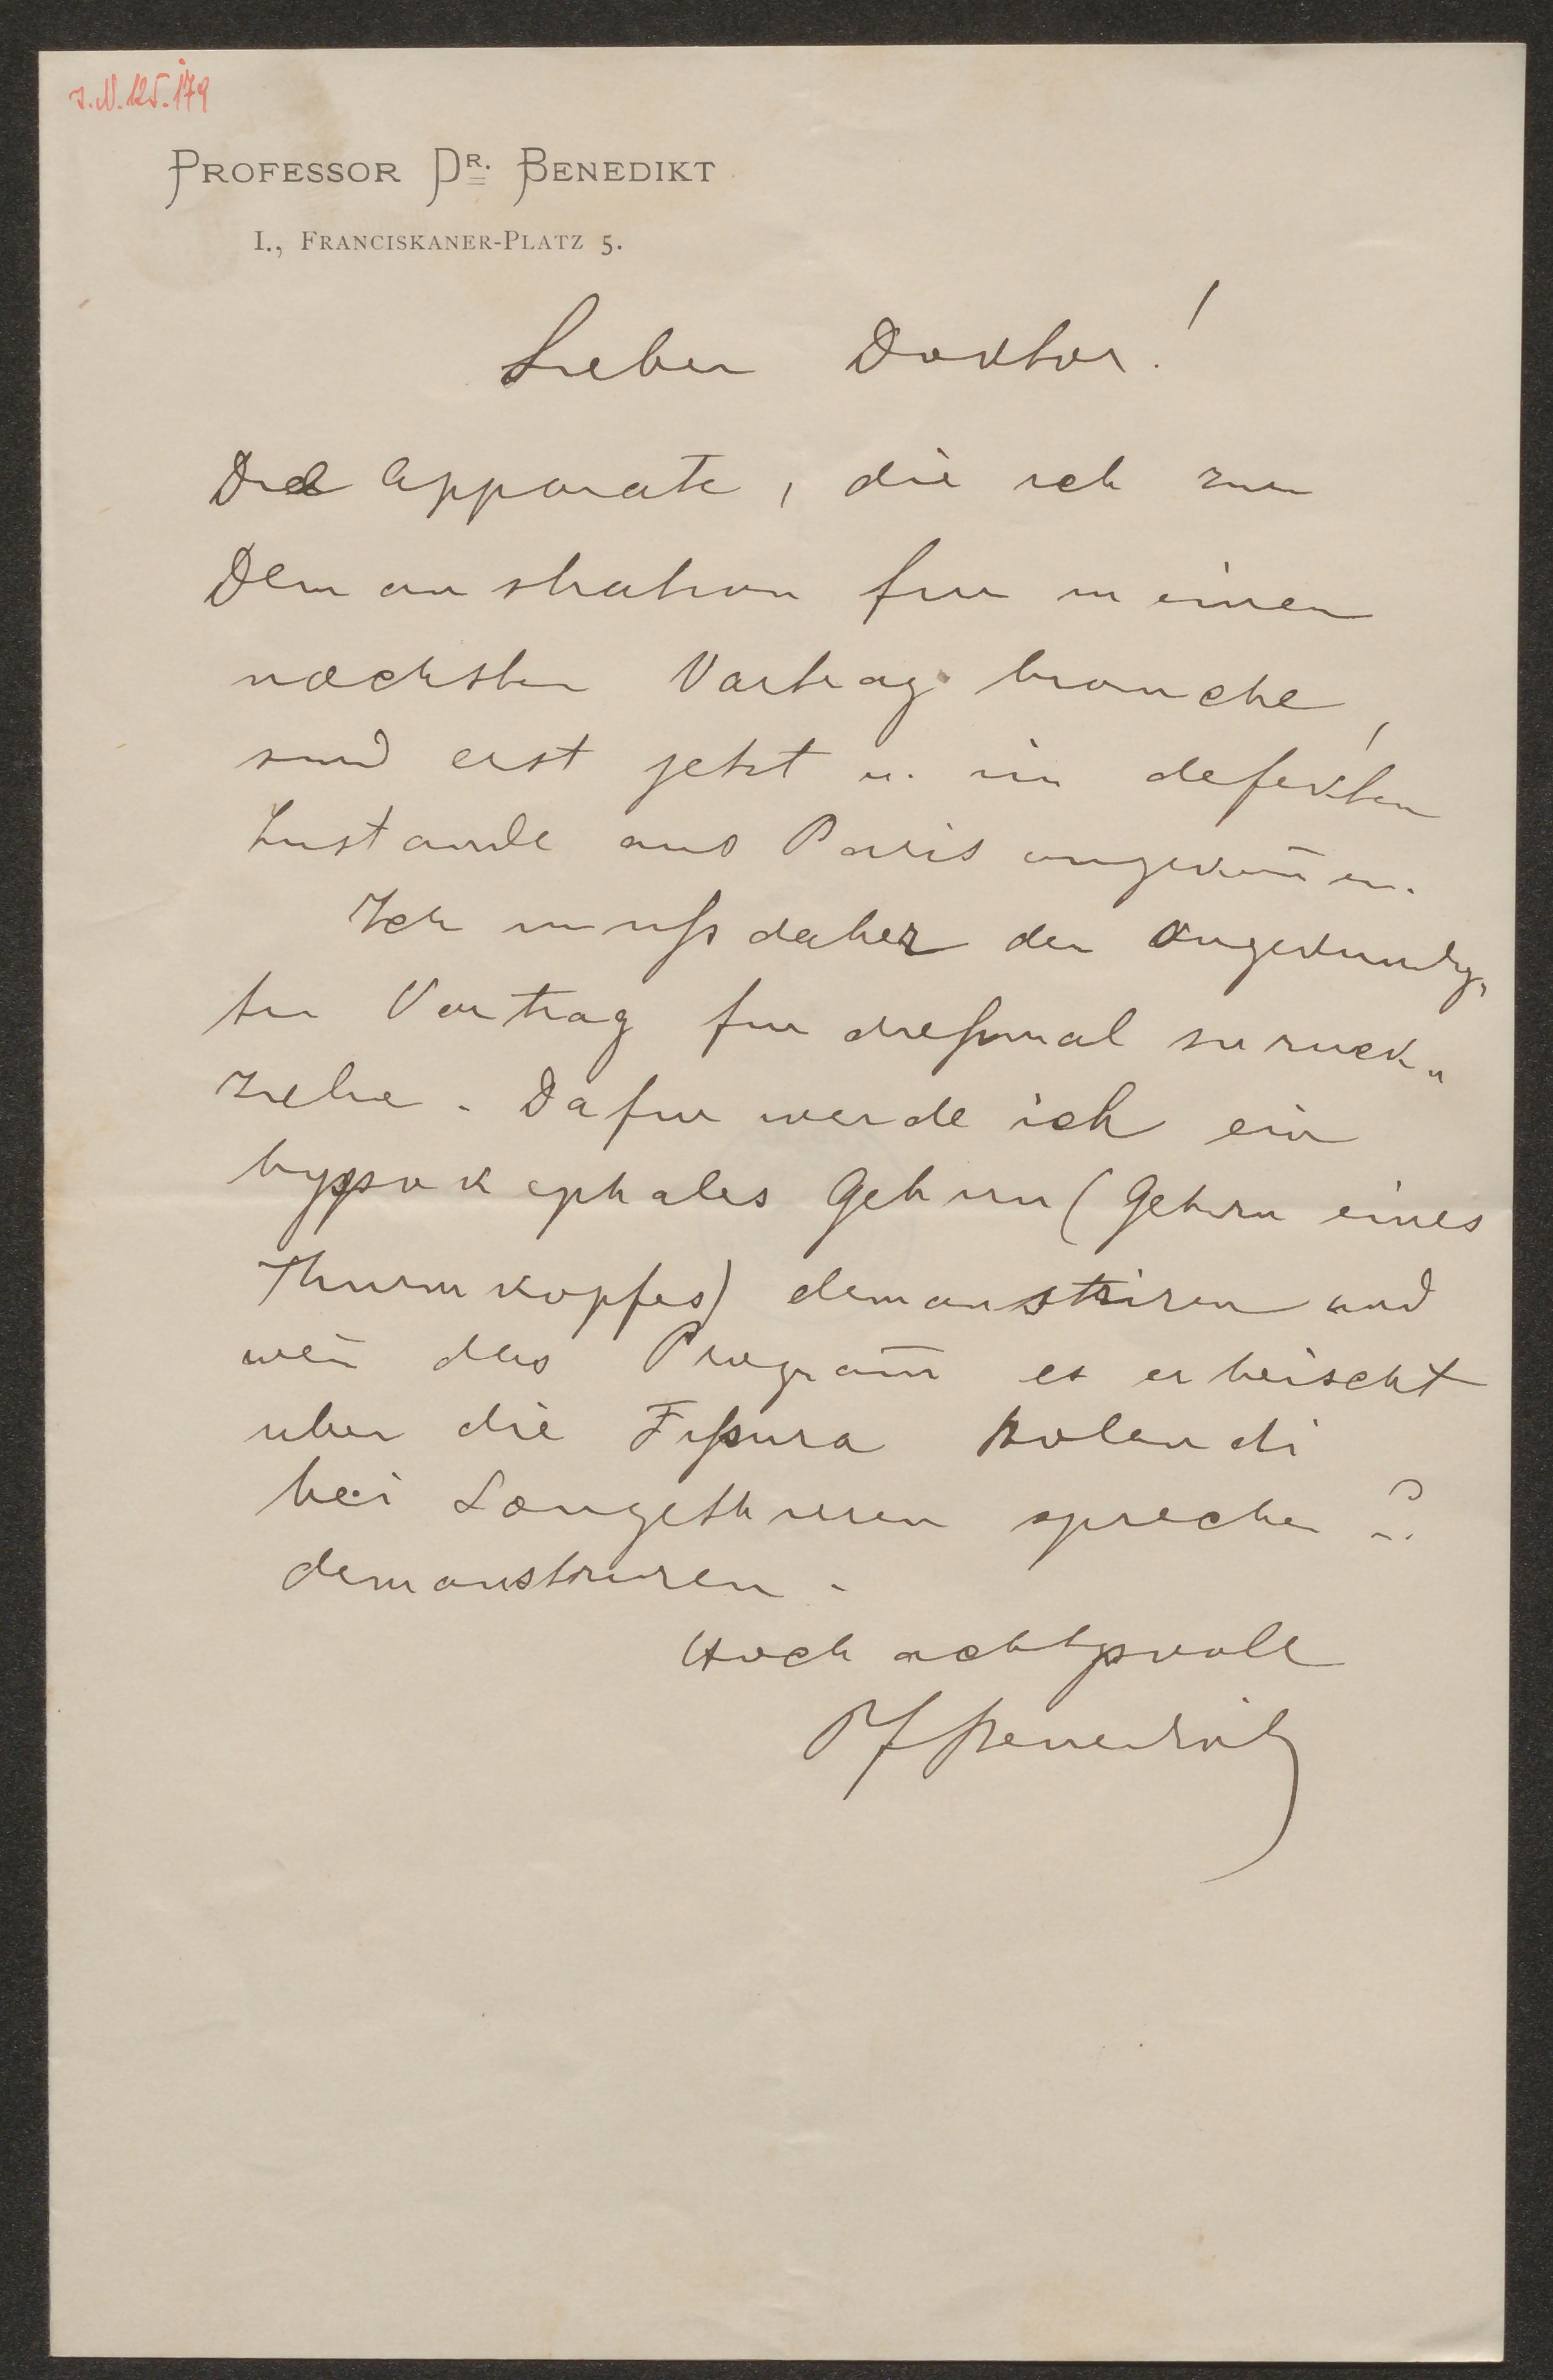 I.N. 125.179
PROFESSOR DR. BENEDIKT
I., FRANCISKANER-PLATZ 5.
Lieber Doktor!
Die Apparate, die ich zur
Demonstration fur meinen
naechsten Vortrag brauche,
sind erst jetzt u. im defekten
Zustande aus Paris angekom̄en.
Ich muſs daher den angekundig„
ten Vortrag fur dieſsmal zuruck„
ziehen. Dafur werde ich ein
hypsokephales Gehirn (Gehirn eines
Thurmkopfes) demonstriren und
wen̄ das Program̄ es erheischt
uber die Fiſsura Rolandi
bei Säugethieren sprechen u.
demonstriren.
Hochachtgsvoll
Benedikt